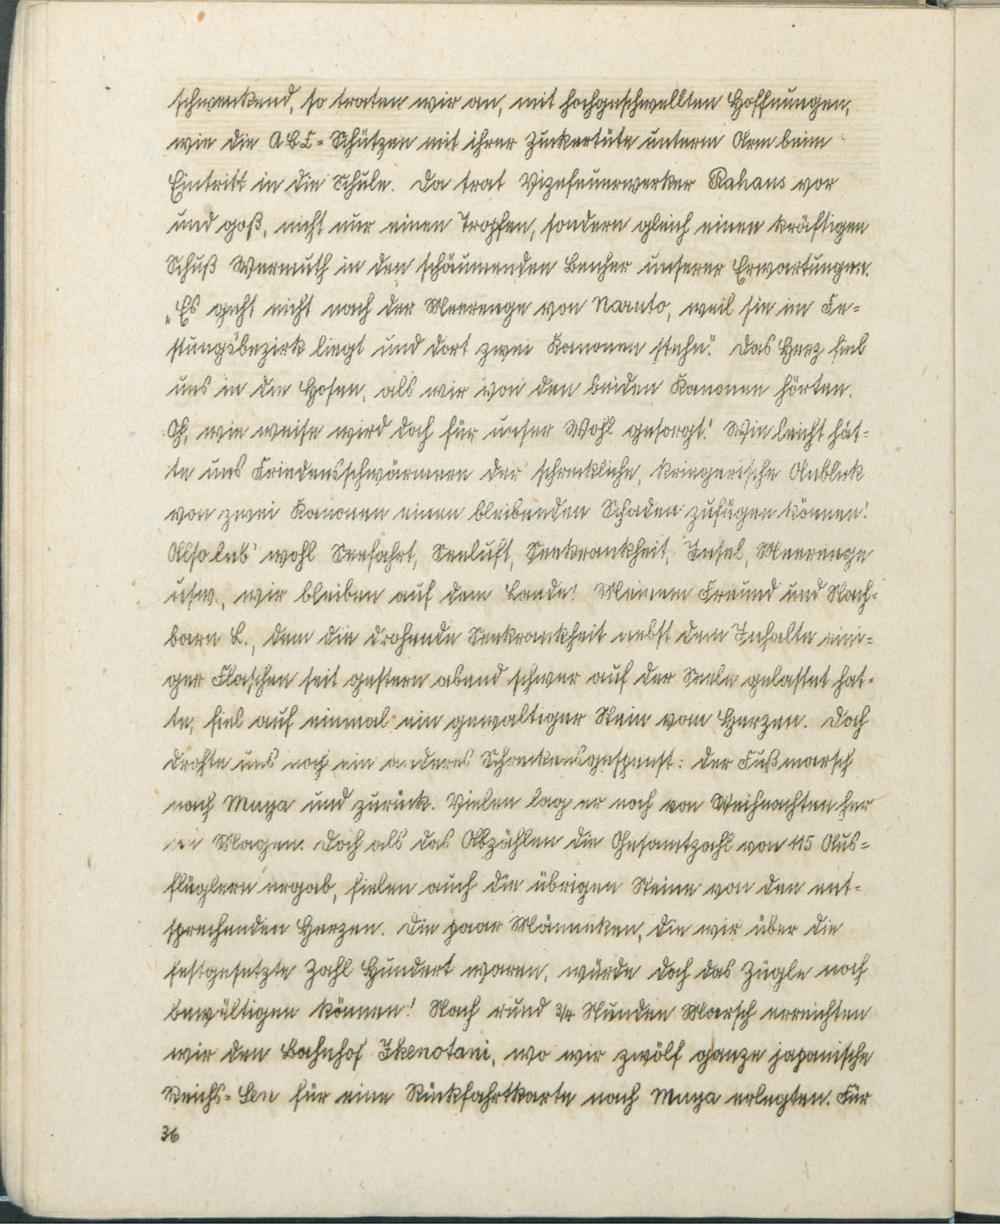 schwenkend, so traten wir an, mit hochgeschwellten Hoffnungen,
wie die ABC-Schützen mit ihrer Zuckertüte unterm Arm beim
Eintritt in die Schule. Da trat Vizefeuerwerker Rahaus vor
und goß, nicht nur einen Tropfen, sondern gleich einen kräftigen
Schuß Wermuth in den schäumenden Becher unserer Erwartungen.
„Es geht nicht nach der Meerenge von Naruto, weil sie im Fe-
stungsbezirk liegt und dort zwei Kanonen stehn." Das Herz fiel
uns in die Hosen, als wir von den beiden Kanonen hörten.
Oh, wie weise wird doch für unser Wohl gesorgt! Wie leicht hät-
te uns Friedensschwärmern der schreckliche, kriegerische Anblick
von zwei Kanonen einen bleibenden Schaden zufügen können!
Also leb' wohl Seefahrt, Seeluft, Seekrankheit, Insel, Meerenge
usw., wir bleiben auf dem Lande! Meinem Freund und Nach-
barn L., dem die drohende Seekrankheit nebst dem Inhalte eini-
ger Flaschen seit gestern abend schwer auf der Seele gelastet hat-
te, fiel auf einmal ein gewaltiger Stein vom Herzen. Doch
drohte uns noch ein anderes Schreckensgespenst: der Fußmarsch
nach Muya und zurück. Vielen lag er noch von Weihnachten her
im Magen. Doch als das Abzählen die Gesamtzahl von 115 Aus-
flüglern ergab, fielen auch die übrigen Steine von den ent-
sprechenden Herzen. Die paar Männeken, die wir über die
festgesetzte Zahl Hundert waren, würde doch das Zügle noch
bewältigen können! Nach rund 3/4 Stunden Marsch erreichten
wir den Bahnhof Ikenotani, wo wir zwölf ganze japanische
Reichs-Sen für eine Rückfahrtkarte nach Muya erlegten. Für
36